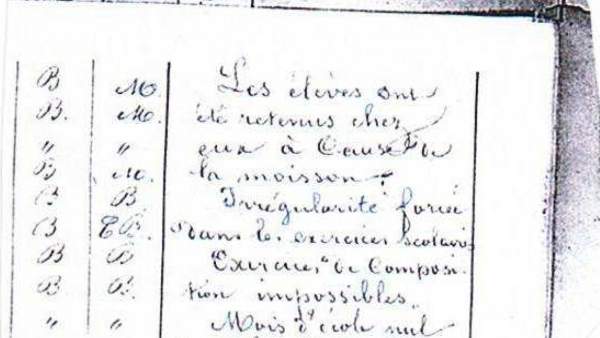 B M. Les élèves ont
B. M. été retenus chez
" " eux à Cause de
B M. la moisson.
B B. Irrégularité forcée
B TB. dans les exercices scolaires
B B Exercices de Composi
B B. tion impossibles.
" " Mois d'école nul